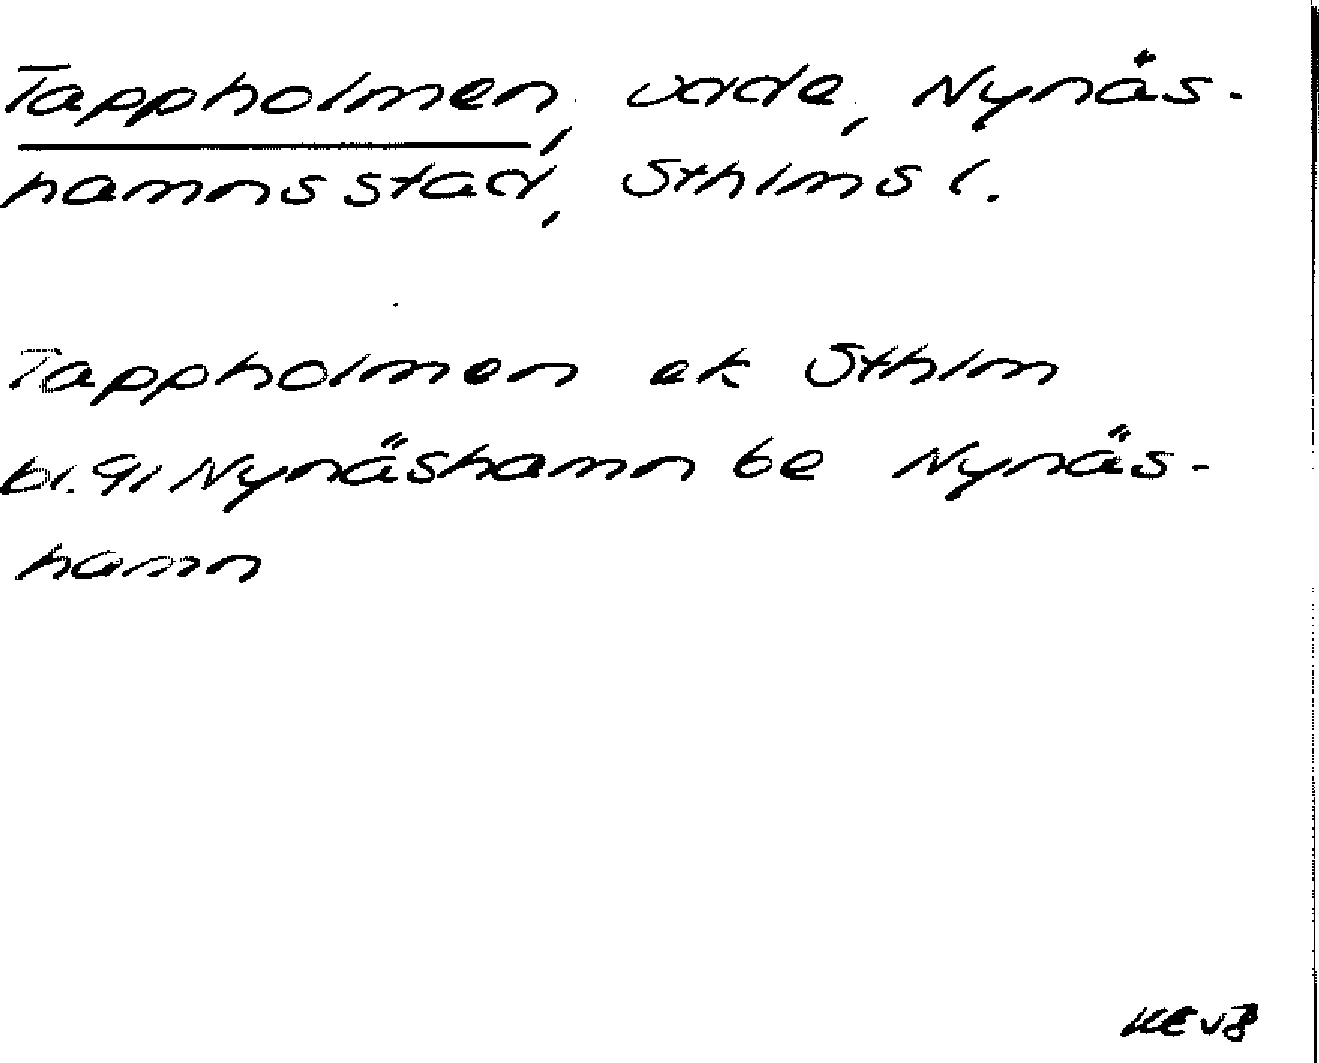 Tappholmen, udde, Nynäs-
hamns stad, Sthlms l.
Tappholmen ek Sthlm
bl. 91 Nynäshamn be Nynäs-
hamn